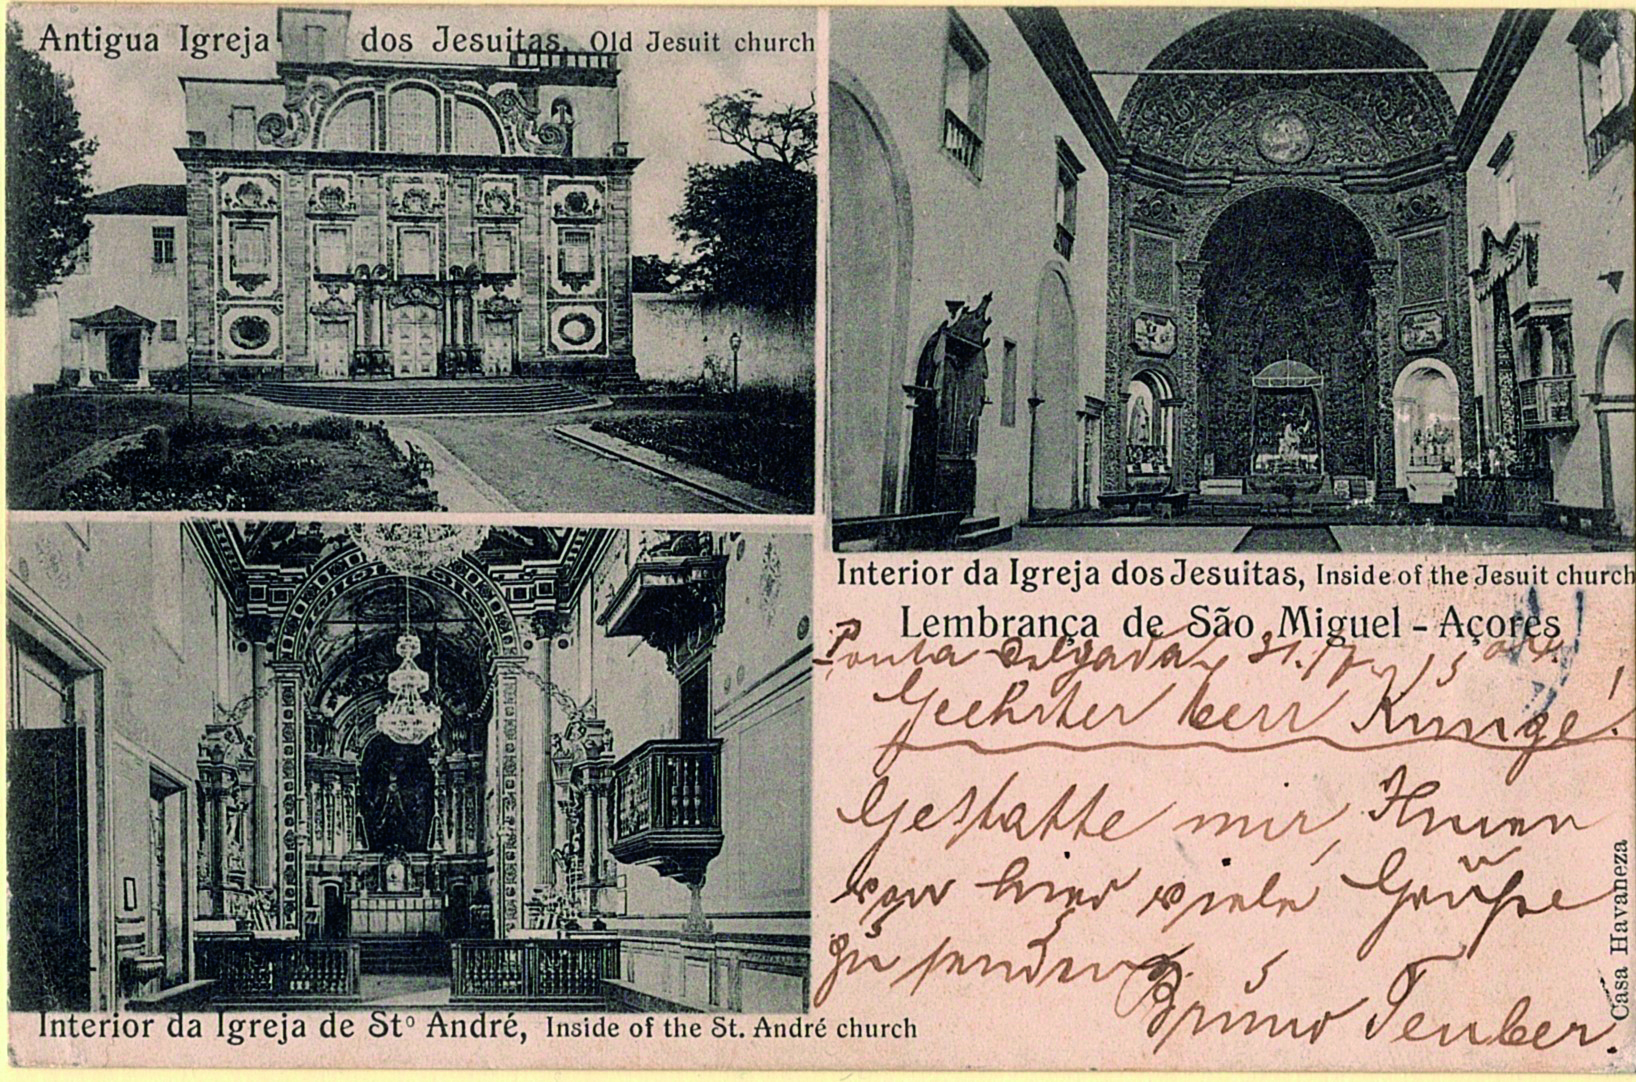 Antigua Igreja dos Jesuitas, Old Jesuit church
Interior da Igreja dos Jesuitas, Inside of the Jesuit church
Lembrança de São Miguel - Açores
Ponta Delgada, 31.
Geehrter Herr Kunze!
Gestatte mir, Ihnen
von hier viele Grüße
zu senden.
Bruno Teuber.
Casa Havaneza
Interior da Igreja de Stº André, Inside of the St. André church